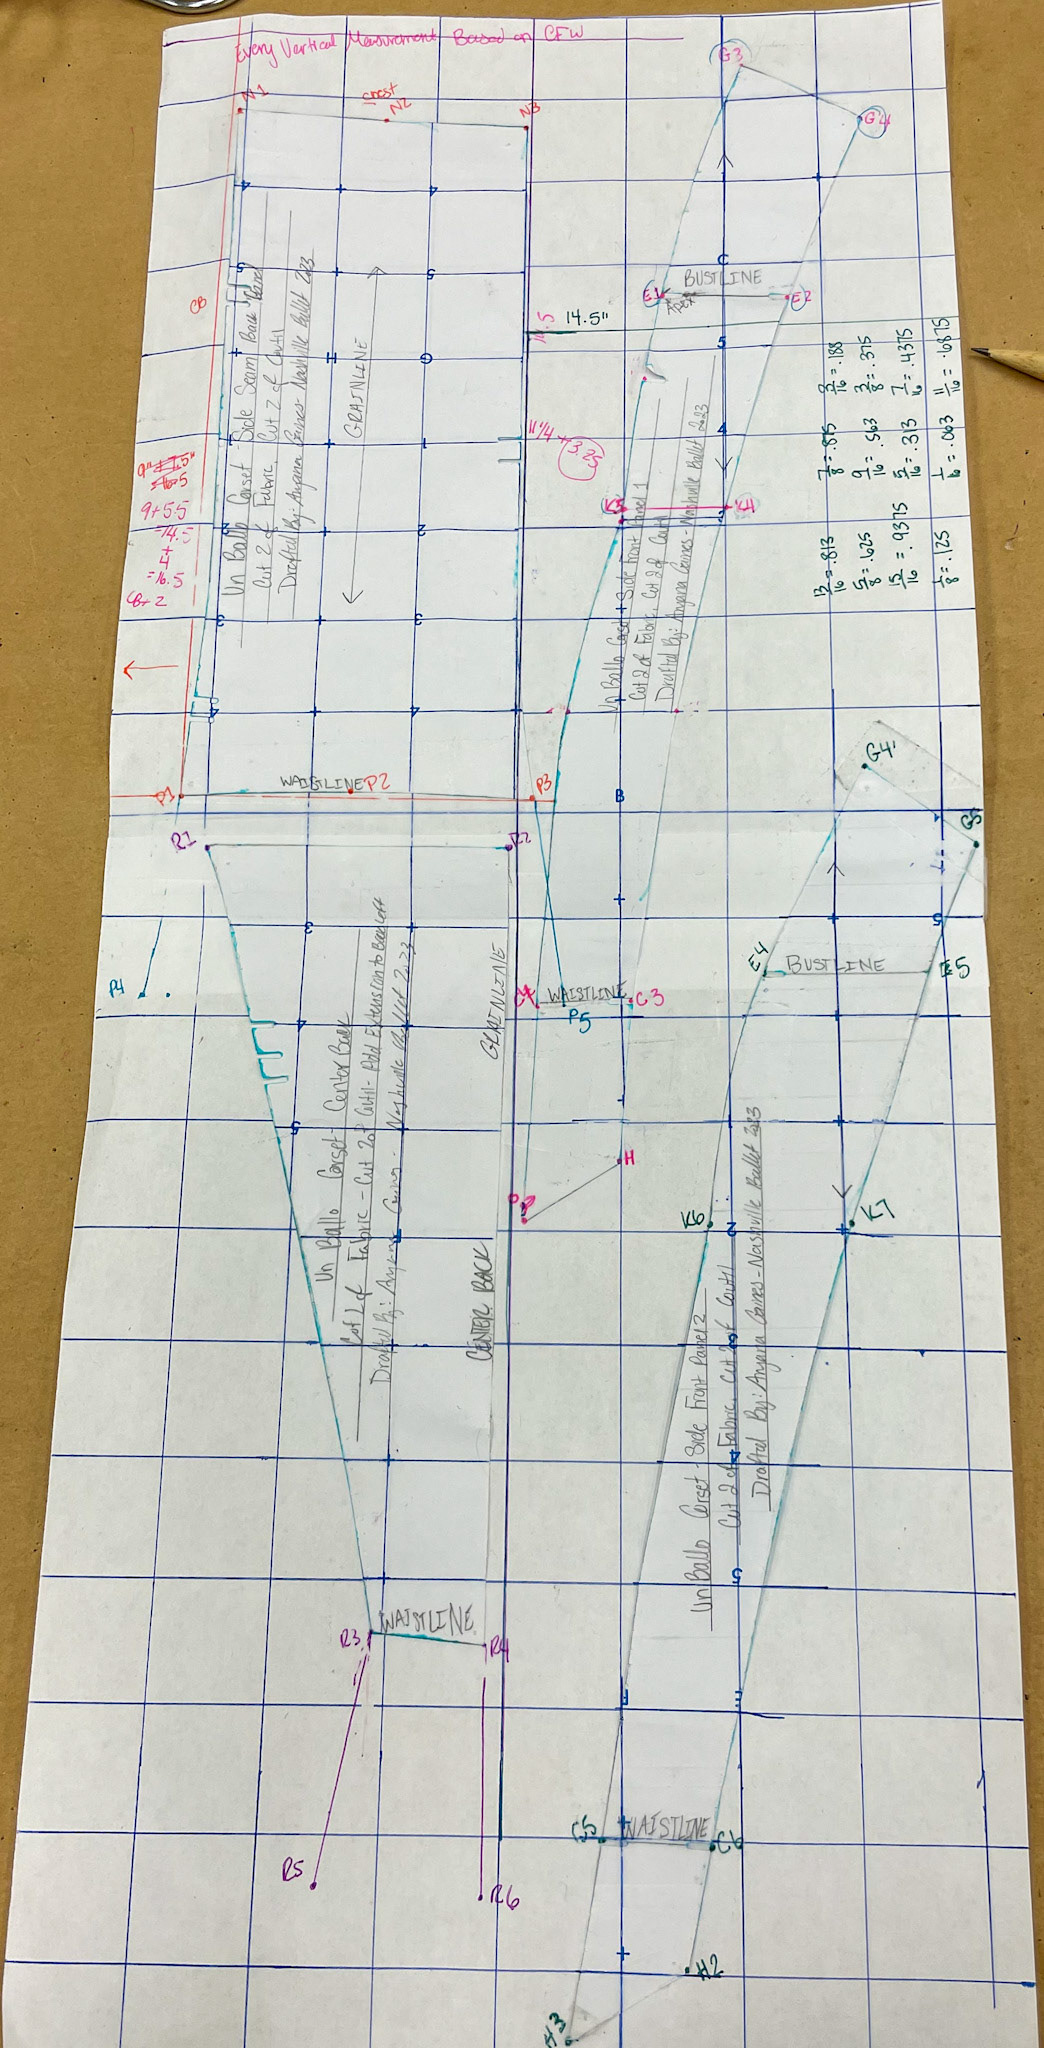 Every Vertical Measurement Based on CFW
N1
chest
N2
N3
G3
G4
CB
Un Ballo Corset - Side Seam Back Panel
Cut 2 of Fabric, Cut 2 of Coutil
Drafted By: Anyana Gaines - Nashville Ballet 2023
GRAINLINE
BUSTLINE
E1
APEX
E2
14.5"
11 1/4 + 3.25
9+5.5
=14.5
=16.5
CB+2
K5
K4
Un Ballo Corset - Side Front Panel 1
Cut 2 of Fabric, Cut 2 of Coutil
Drafted By: Anyana Gaines - Nashville Ballet 2023
3/16 = .188
3/8 = .375
7/16 = .4375
11/16 = .6875
7/8 = .875
9/16 = .563
5/16 = .313
1/16 = .063
13/16 = .813
5/8 = .625
15/16 = .9375
1/8 = .125
P1
WAISTLINE
P2
P3
B
R1
R2
G4'
G5
E4
BUSTLINE
E5
P4
WAISTLINE
C3
P5
GRAINLINE
Un Ballo Corset - Center Back
Cut 2 of Fabric - Cut 2 of Coutil - Add Extension to Back Left
Drafted By: Anyana Gaines - Nashville Ballet 2023
CENTER BACK
H
K6
K7
Un Ballo Corset - Side Front Panel 2
Cut 2 of Fabric, Cut 2 of Coutil
Drafted By: Anyana Gaines - Nashville Ballet 2023
R3
WAISTLINE
R4
R5
R6
C5
WAISTLINE
C6
H2
H3